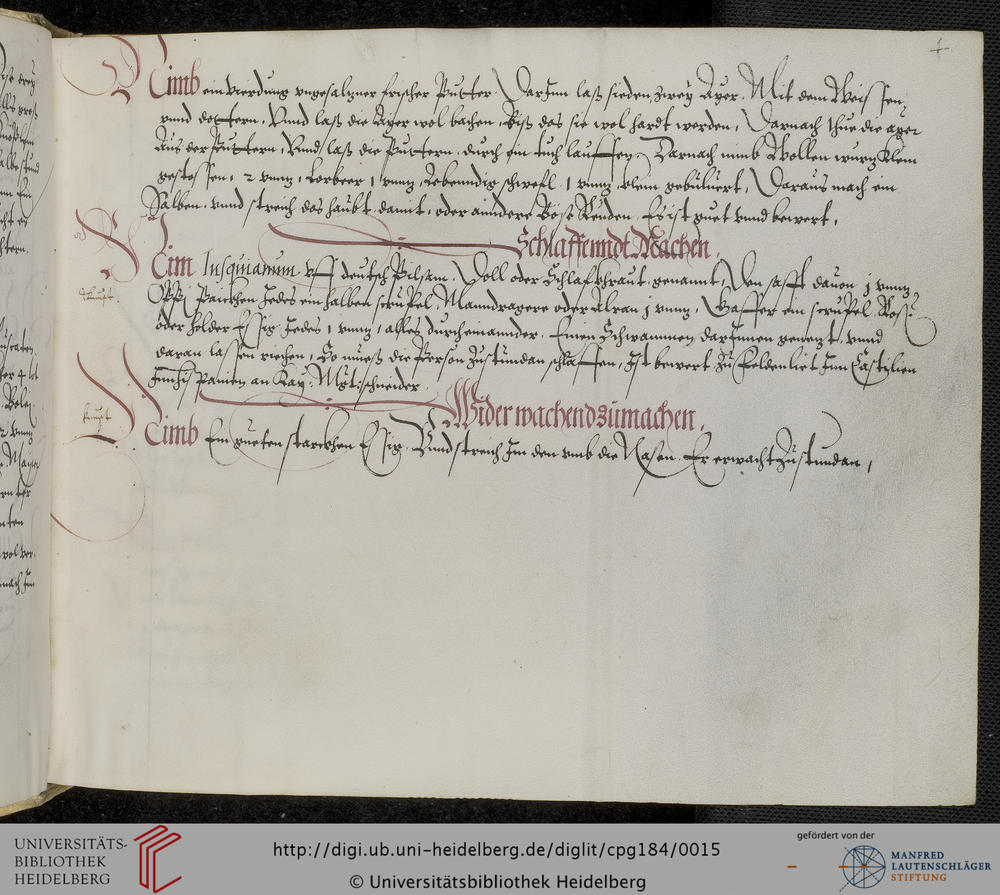 4
Nimb ein vierdung vngesalzner frischer Putter. Darjnn laß sieden zwey Ayer. Mit dem Weissen
vnnd dottern, Vnnd laß die Ayer wol bachen, biß das sie wol hardt werden, Darnach thue die ayer
Aus der Puttern, Vnnd laß die Puttern durch ein tuch lauffen, Darnach nimb Wollen wurz klein
gestossen, 2 vnnz, Lorbeer 1 vnnz, Lebenndig schwefl 1 vnnz, klein gebuluert, Daraus mach ein
Salben, vnnd streich das haubt damit, oder anndere Böse Reüden. Es ist guet vnnd bewert,
Schlaffenndt Machen,
Nim Jusquiamum vff deutsch Pilsam. Doll oder Schlafkhraut genannt, Den safft dauon j vnnz
jedes ein halben scrupel, Manndragere oder Alraun j vnnz, Gaffer ein scrupel, Ross
oder holder Essig Jedes 1 vnnz, alles durcheinannder. Einen Schwammen darjnnen genezt, vnnd
daran lassen riechen, So mueß die Person zustundan schlaffen, Jst bewert zu Jnn Castilien
Jnn hispanien an Kay: Mgt: schneider
Wider wachend zumachen,
Nimb Ein gueten starckhen Essig. Vnnd streich Jm den vmb die Nasen. Er erwacht zustundan,
UNIVERSITÄTS-
BIBLIOTHEK
HEIDELBERG
http://digi.ub.uni-heidelberg.de/diglit/cpg184/0015
© Universitätsbibliothek Heidelberg
gefördert von der
MANFRED
LAUTENSCHLÄGER
STIFTUNG